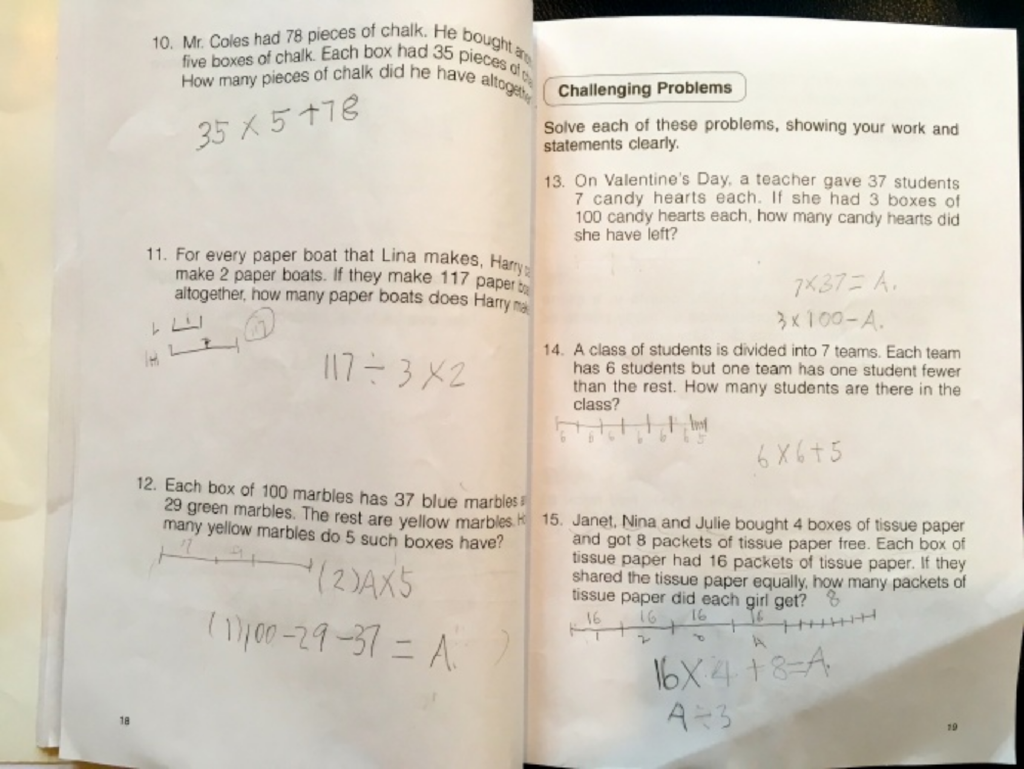 10. Mr. Coles had 78 pieces of chalk. He bought
five boxes of chalk. Each box had 35 pieces of
How many pieces of chalk did he have altogether
35 × 5 + 78
11. For every paper boat that Lina makes, Harry
make 2 paper boats. If they make 117 paper
altogether, how many paper boats does Harry
L
H
117 ÷ 3 × 2
12. Each box of 100 marbles has 37 blue marbles
29 green marbles. The rest are yellow marbles.
many yellow marbles do 5 such boxes have?
(2) A × 5
(1) 100 - 29 - 37 = A.
18
Challenging Problems
Solve each of these problems, showing your work and
statements clearly.
13. On Valentine's Day, a teacher gave 37 students
7 candy hearts each. If she had 3 boxes of
100 candy hearts each, how many candy hearts did
she have left?
7 × 37 = A.
3 × 100 - A.
14. A class of students is divided into 7 teams. Each team
has 6 students but one team has one student fewer
than the rest. How many students are there in the
class?
6 6 6 6 6 6 5
6 × 6 + 5
15. Janet, Nina and Julie bought 4 boxes of tissue paper
and got 8 packets of tissue paper free. Each box of
tissue paper had 16 packets of tissue paper. If they
shared the tissue paper equally, how many packets of
tissue paper did each girl get? 8
16 16 16 16
16 × 4 + 8 = A.
A ÷ 3
19